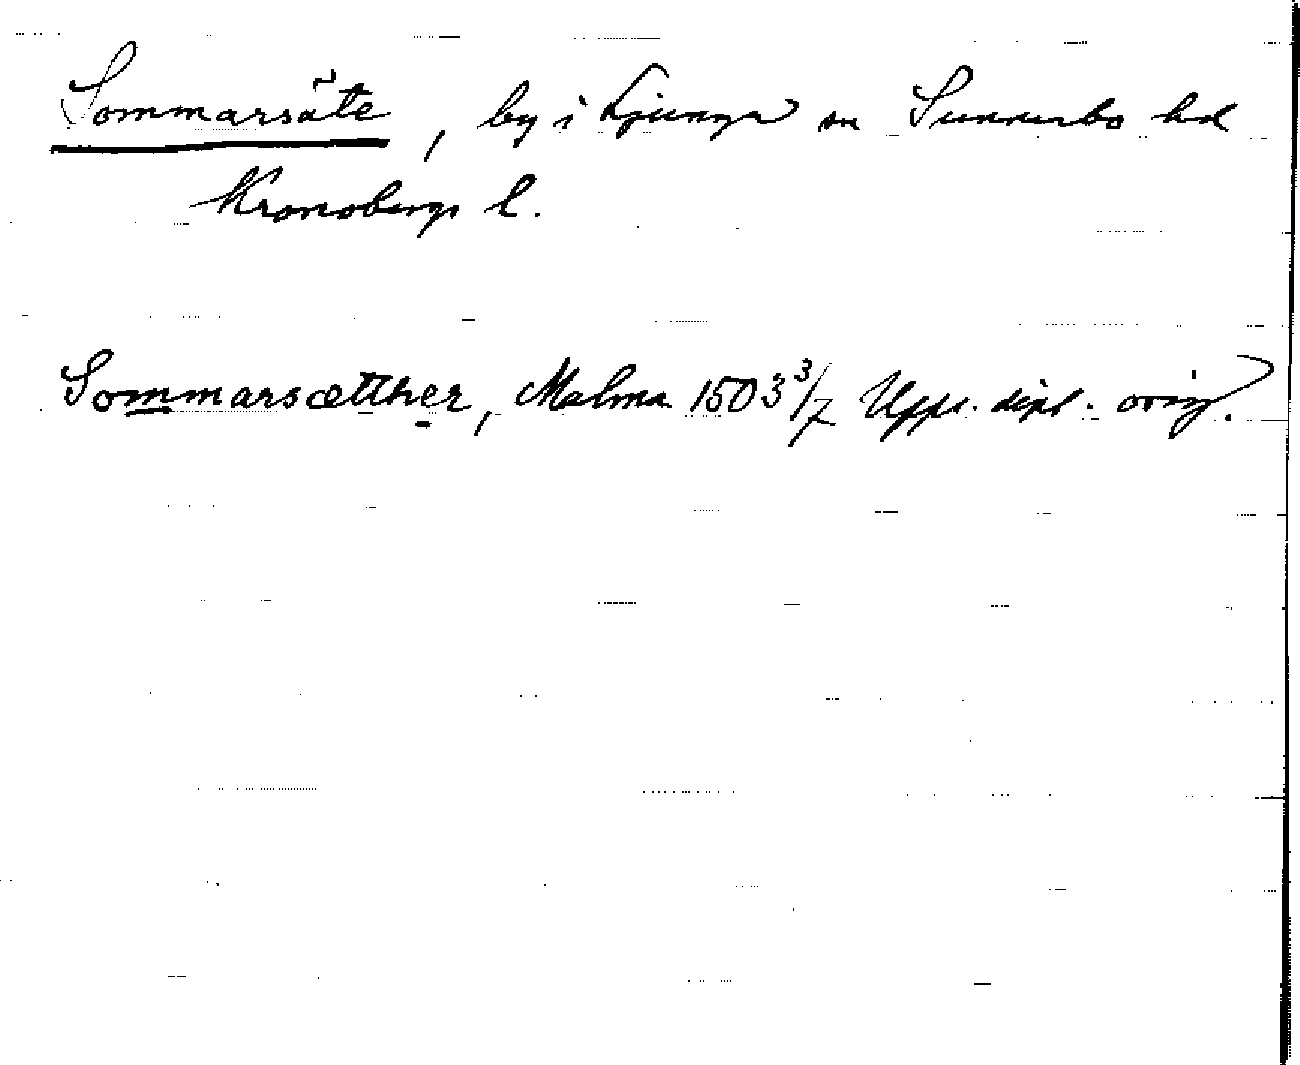 Sommarsäte, by i Ljunga sn Sunnerbo hd
Kronobergs l.
Sommarsætther, Malma 1503 3/7 Upps. dipl. orig.